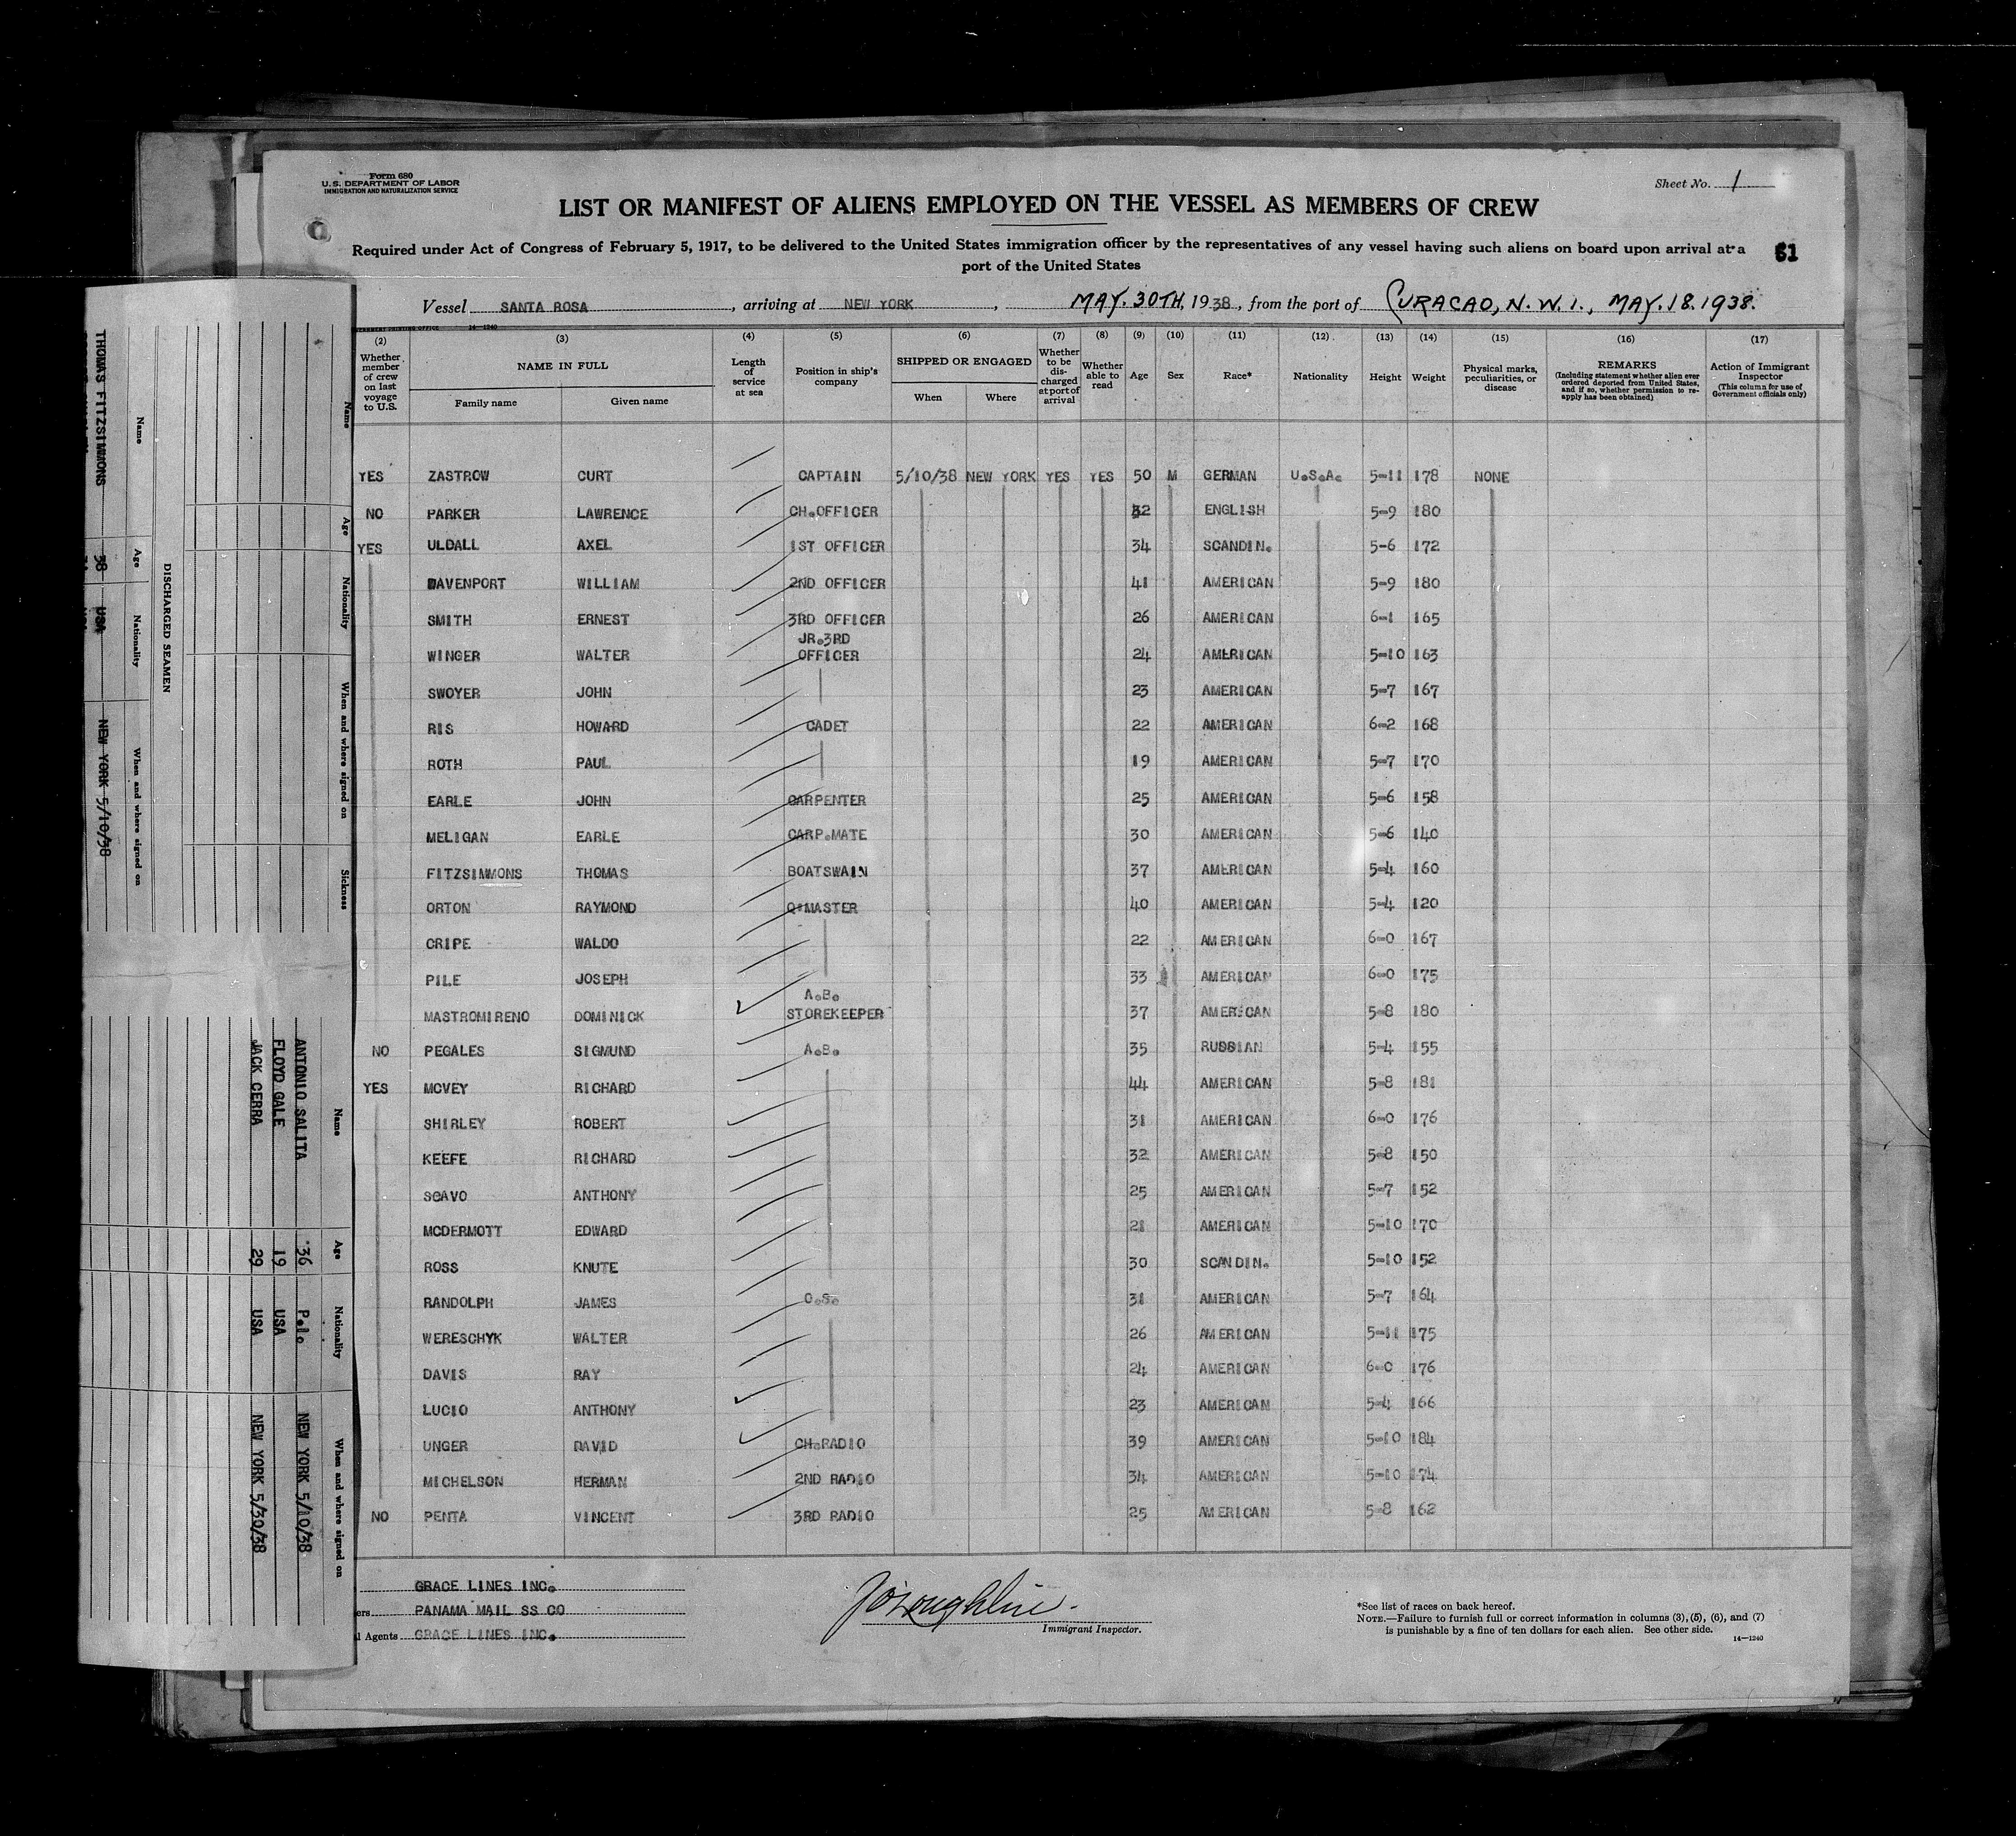 Form 680
U.S. DEPARTMENT OF LABOR
IMMIGRATION AND NATURALIZATION SERVICE
Sheet No. 1
LIST OR MANIFEST OF ALIENS EMPLOYED ON THE VESSEL AS MEMBERS OF CREW
Required under Act of Congress of February 5, 1917, to be delivered to the United States immigration officer by the representatives of any vessel having such aliens on board upon arrival at a
port of the United States
51
Vessel SANTA ROSA, arriving at NEW YORK, MAY. 30TH, 1938, from the port of CURACAO, N.W.I., MAY. 18. 1938.
14-1240
(2) Whether member of crew on last voyage to U.S.
(3) NAME IN FULL Family name Given name
(4) Length of service at sea
(5) Position in ship's company
(6) SHIPPED OR ENGAGED When Where
(7) Whether to be discharged at port of arrival
(8) Whether able to read
(9) Age
(10) Sex
(11) Race*
(12) Nationality
(13) Height
(14) Weight
(15) Physical marks, peculiarities, or disease
(16) REMARKS (Including statement whether alien ever ordered deported from United States, and if so, whether permission to re-apply has been obtained)
(17) Action of Immigrant Inspector (This column for use of Government officials only)
YES ZASTROW CURT CAPTAIN 5/10/38 NEW YORK YES YES 50 M GERMAN U.S.A. 5-11 178 NONE
NO PARKER LAWRENCE CH.OFFICER 32 ENGLISH 5-9 180
YES ULDALL AXEL 1ST OFFICER 34 SCANDIN. 5-6 172
DAVENPORT WILLIAM 2ND OFFICER 41 AMERICAN 5-9 180
SMITH ERNEST 3RD OFFICER 26 AMERICAN 6-1 165
WINGER WALTER JR.3RD OFFICER 24 AMERICAN 5-10 163
SWOYER JOHN 23 AMERICAN 5-7 167
RIS HOWARD CADET 22 AMERICAN 6-2 168
ROTH PAUL 19 AMERICAN 5-7 170
EARLE JOHN CARPENTER 25 AMERICAN 5-6 158
MELIGAN EARLE CARP.MATE 30 AMERICAN 5-6 140
FITZSIMMONS THOMAS BOATSWAIN 37 AMERICAN 5-4 160
ORTON RAYMOND Q*MASTER 40 AMERICAN 5-4 120
CRIPE WALDO 22 AMERICAN 6-0 167
PILE JOSEPH 33 AMERICAN 6-0 175
MASTROMIRENO DOMINICK A.B. STOREKEEPER 37 AMERICAN 5-8 180
NO PEGALES SIGMUND A.B. 35 RUSSIAN 5-4 155
YES MCVEY RICHARD 44 AMERICAN 5-8 181
SHIRLEY ROBERT 31 AMERICAN 6-0 176
KEEFE RICHARD 32 AMERICAN 5-8 150
SCAVO ANTHONY 25 AMERICAN 5-7 152
MCDERMOTT EDWARD 21 AMERICAN 5-10 170
ROSS KNUTE 30 SCANDIN. 5-10 152
RANDOLPH JAMES O.S. 31 AMERICAN 5-7 164
WERESCHYK WALTER 26 AMERICAN 5-11 175
DAVIS RAY 24 AMERICAN 6-0 176
LUCIO ANTHONY 23 AMERICAN 5-4 166
UNGER DAVID CH.RADIO 39 AMERICAN 5-10 184
MICHELSON HERMAN 2ND RADIO 34 AMERICAN 5-10 174
NO PENTA VINCENT 3RD RADIO 25 AMERICAN 5-8 162
GRACE LINES INC.
ers PANAMA MAIL SS CO
l Agents GRACE LINES INC.
Immigrant Inspector.
*See list of races on back hereof.
NOTE.—Failure to furnish full or correct information in columns (3), (5), (6), and (7)
is punishable by a fine of ten dollars for each alien. See other side.
14—1240
Name Age Nationality When and where signed on Sickness
DISCHARGED SEAMEN
Name Age Nationality When and where signed on
THOMAS FITZSIMMONS 38 USA NEW YORK 5/10/38
Name Age Nationality When and where signed on
ANTONIO SALITA 36 P.I. NEW YORK 5/10/38
FLOYD GALE 19 USA
JACK CERRA 29 USA NEW YORK 5/30/38